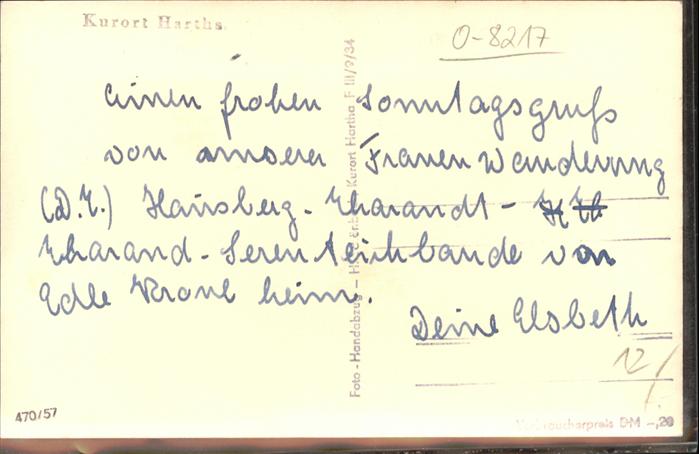 Kurort Hartha
O-8217
Einen frohen Sonntagsgruß
von unserer Frauen Wanderung
(D.F.) Hainsberg - Tharandt -
Tharand - Serenteichbaude von
Edle Krone heim.
Deine Elsbeth
12/-
470/57
Foto - Handabzug - Kurort Hartha F III/9/34
Verbraucherpreis DM -,20